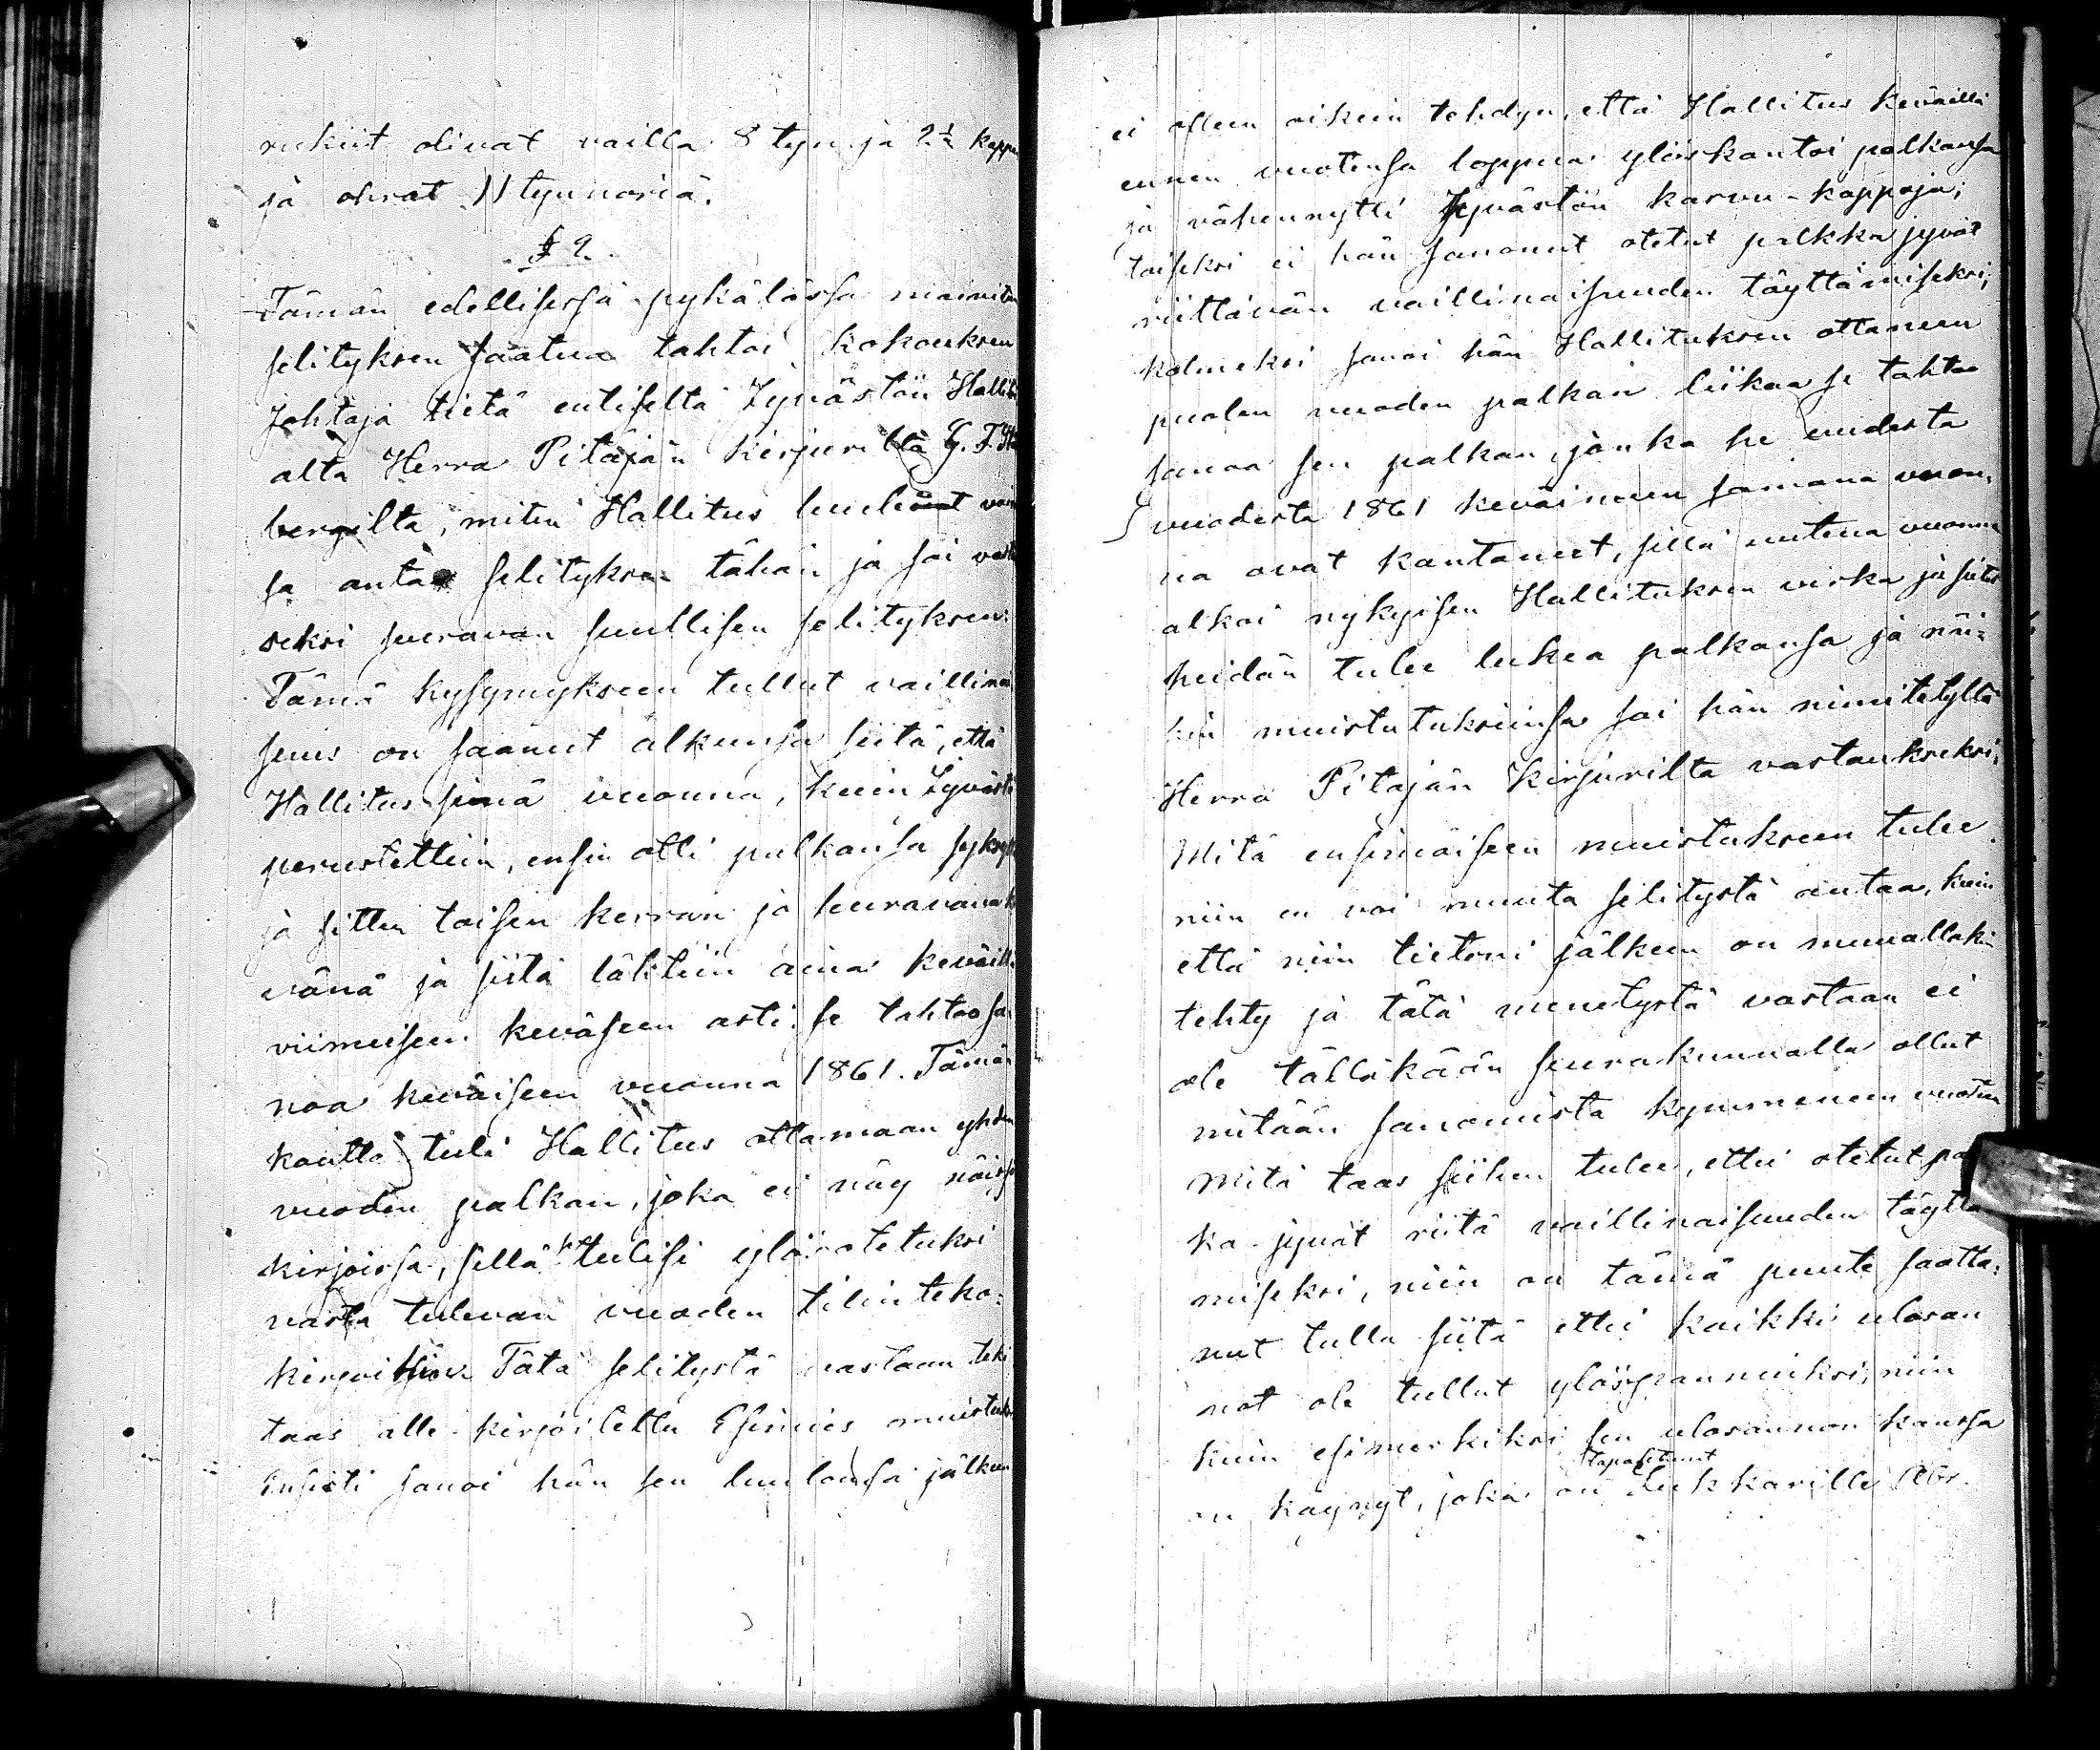 rukiit olivat vailla 8 tyn ja 2½ kappa
ja ohrat 11 tynnoriä.
§ 2.
Tämän edellisessä pykälässä mainitun
selityksen saatua tahtoi kokouksen
Johtaja tietä entiseltä Jyvästön Hallit
alta Herra Pitäjän kirjurilta G. F.
bergilta, miten Hallitus luulevat
sa antaa selityksen tähän ja sai vasta
seksi seuravan suullisen selityksen:
Tämä kysymykseen tullut vaillinai
suus on saanut alkunsa siitä, että
Hallitus sinä vuonna, kuin Jyvästö
perustettiin, ensin otti palkansa syksyllä
ja sitten toisen kerran ja seuravana ke
vänä ja siitä lähtiin aina keväillä
viimeiseen keväseen asti. se tahtoo sa
noa keväiseen vuonna 1861. Tämän
kautta tuli Hallitus ottamaan yhden
vuoden palkan, joka ei näy näissä
kirjoissa, sillä se tulisi ylösotetuksi
vasta tulevan vuoden tilinteko-
kirjoihin. Tätä selitystä vastaan teki
taas alle kirjoitettu Esimies muistuks
Ensisti sanoi hän sen luulonsa jälkeen
ei olleen oikein tehdyn, että Hallitus keväillä
ennen vuotensa loppua ylöskantoi palkansa
ja vähennytti Jyvästön kasvu-kappoja;
toiseksi ei hän sanonut otetut palkka jyvät
riittävän vaillinaisuuden täyttämiseksi;
kolmeksi sanoi hän Hallituksen ottaneen
puolen vuoden palkan liikaa se tahtoo
sanoa sen palkan, jonka he uudesta
vuodesta 1861 keväimeen samana vuon-
na ovat kantaneet, sillä uutena vuonna
alkoi nykyisen Hallituksen virka ja siitä
heidän tulee lukea palkansa ja näi-
hin muistutuksiinsa sai hän nimitetyltä
Herra Pitäjän Kirjurilta vastaukseksi;
Mitä ensimäiseen muistukseen tulee
niin en voi muuta selitystä antaa, kuin
että niin tietoni jälkeen on muuallakin
tehty ja tätä menetystä vastaan ei
ole tälläkään seurakunnalla ollut
mitään sanomista kymmeneen vuoteen
Mitä taas siihen tulee, ettei otetut pa
ka-jyvät riitä vaillinaisuuden täyttä
miseksi, niin on tämä puute saatta-
nut tulla siitä ettei kaikki ulosan
not ole tullut ylöspannuiksi, niin
kuin esimerkiksi sen ulosannon kanssa
on käynyt, joka on tapahtunut Lukkarille Abr.